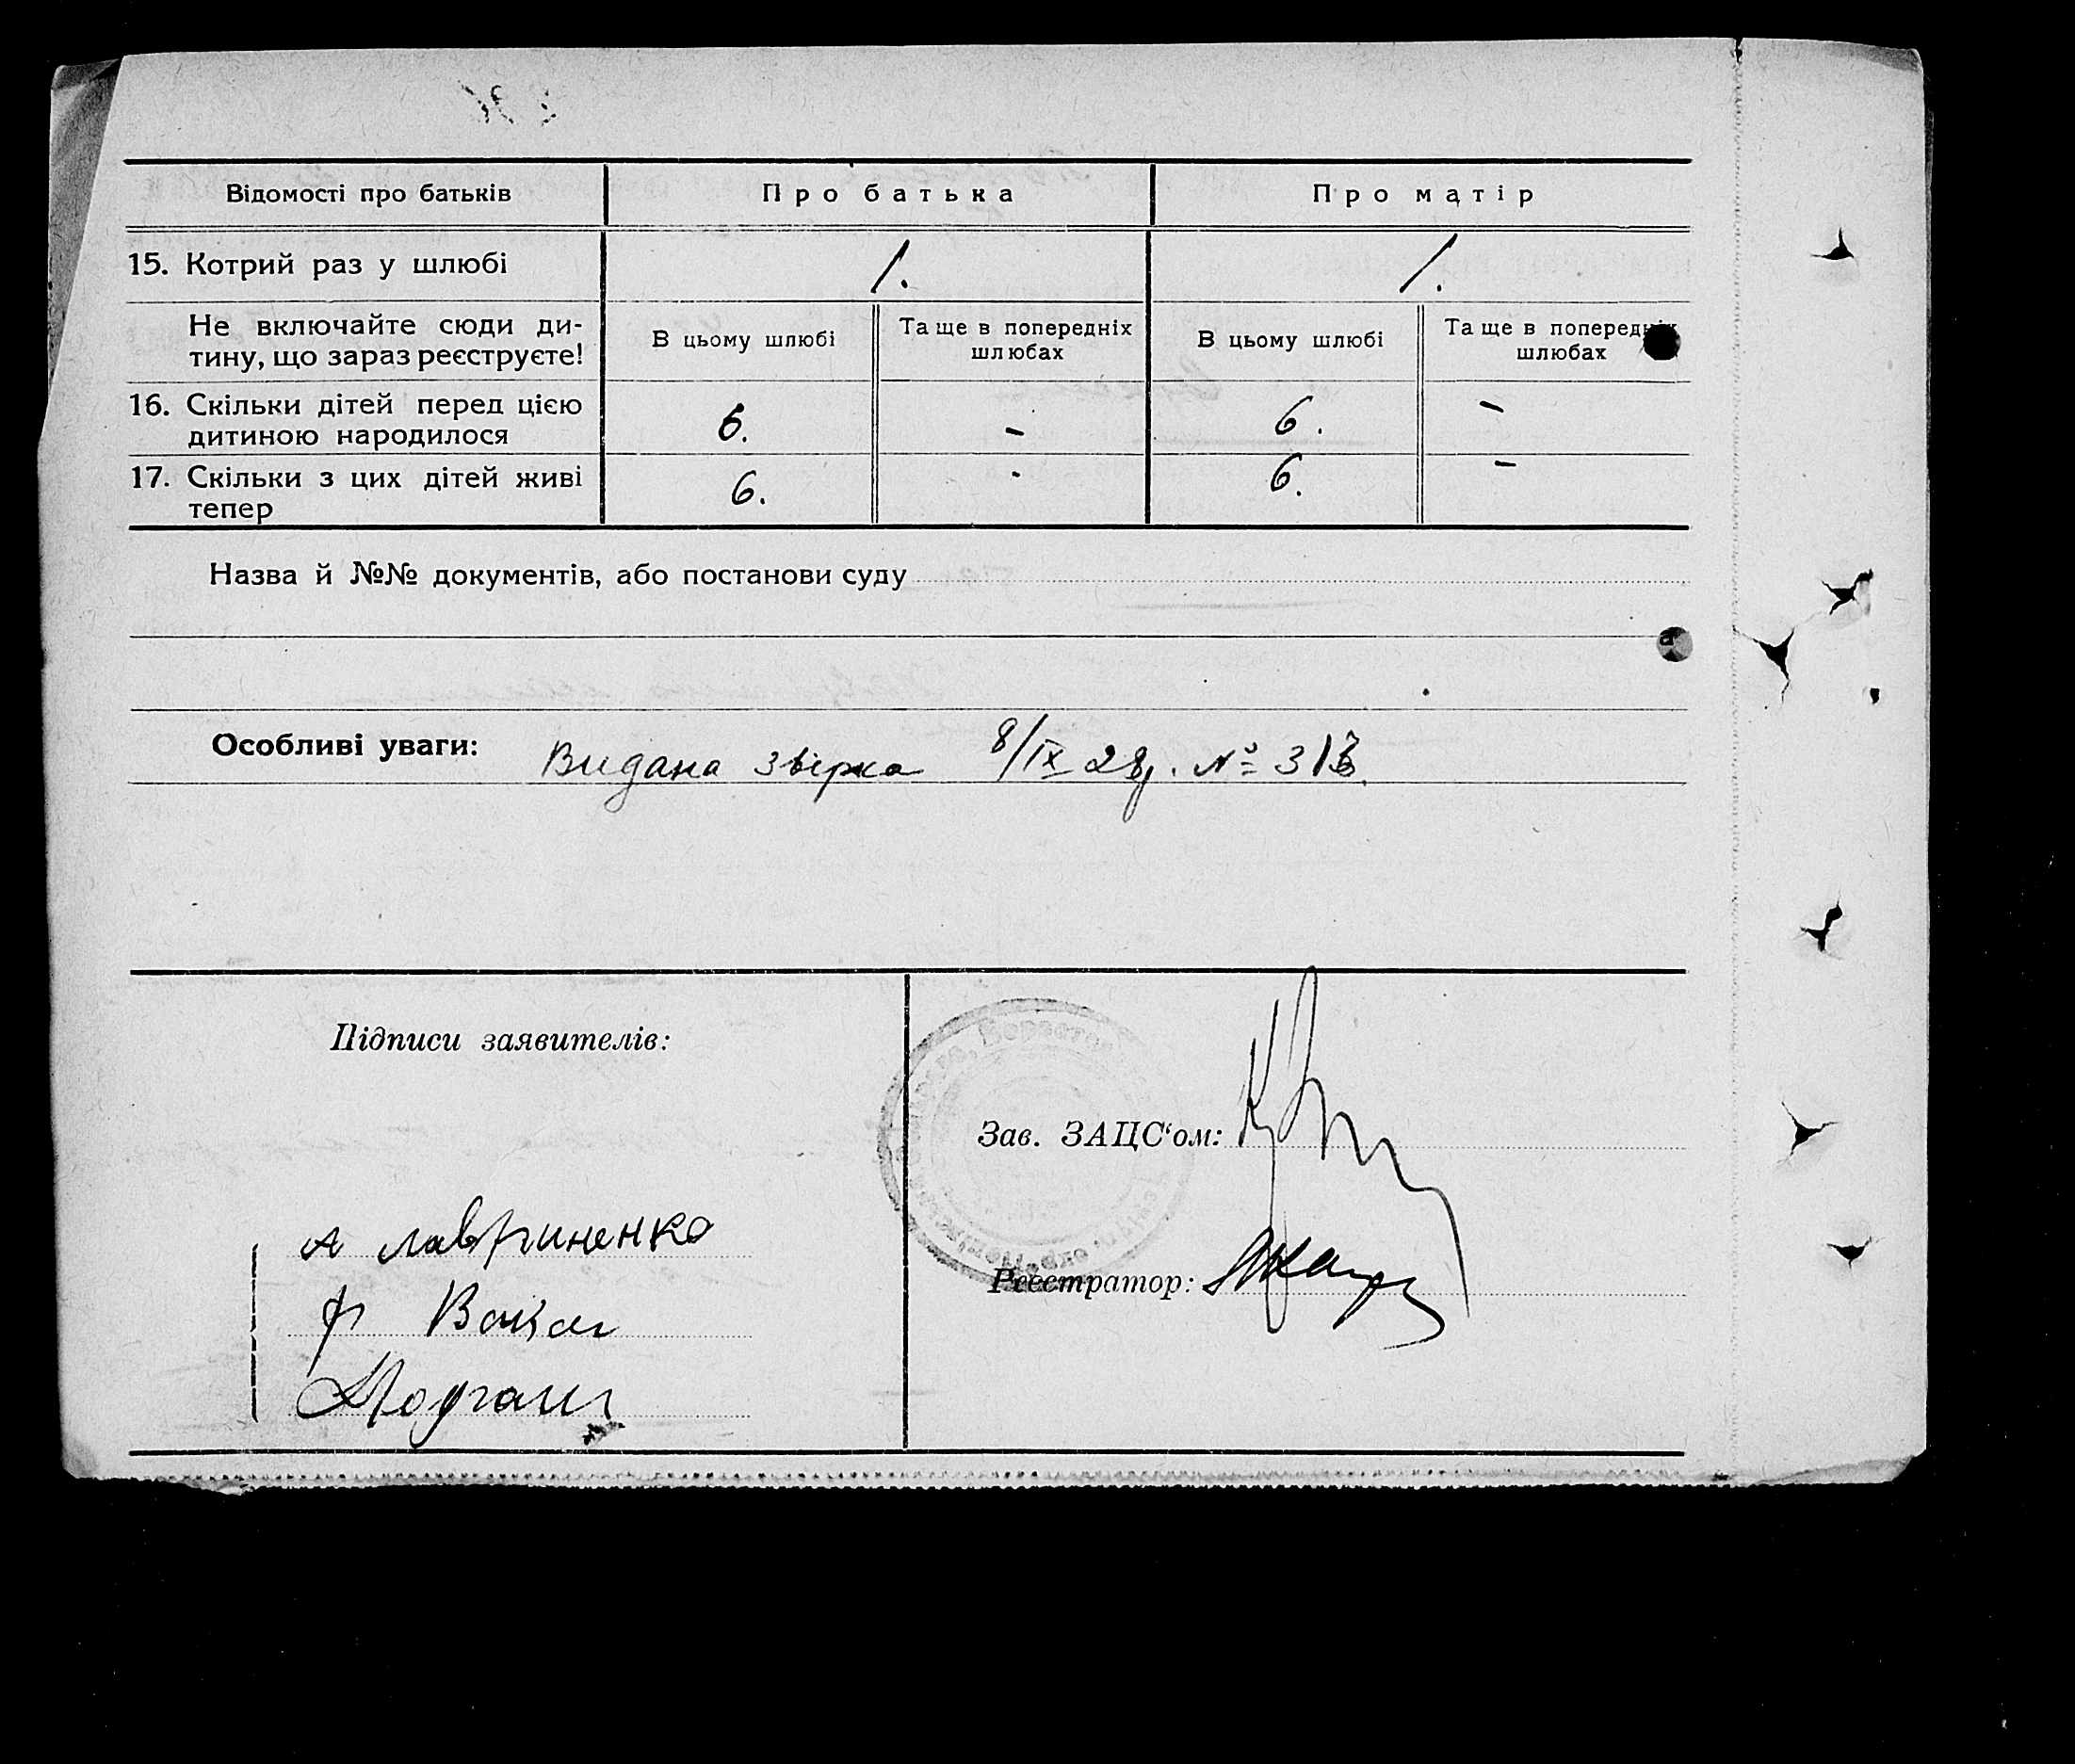 Відомості про батьків Про батька Про матір
15. Котрий раз у шлюбі 1. 1.
Не включайте сюди ди-
тину, що зараз реєструєте!
В цьому шлюбі
Та ще в попередніх
шлюбах
В цьому шлюбі
Та ще в попередніх
шлюбах
16. Скільки дітей перед цією
дитиною народилося
6. - 6. -
17. Скільки з цих дітей живі
тепер
6. - 6. -
Назва й №№ документів, або постанови суду
Особливі уваги: Видана звірка 8/IX 28р. №
Підписи заявителів:
Зав. ЗАЦС‘ом:
А Лавриненко
Реєстратор: